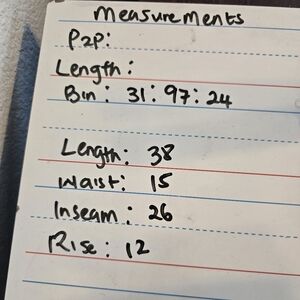 Measurements
P2P:
Length:
Bin: 31:97:24
Length: 38
Waist: 15
Inseam: 26
Rise: 12